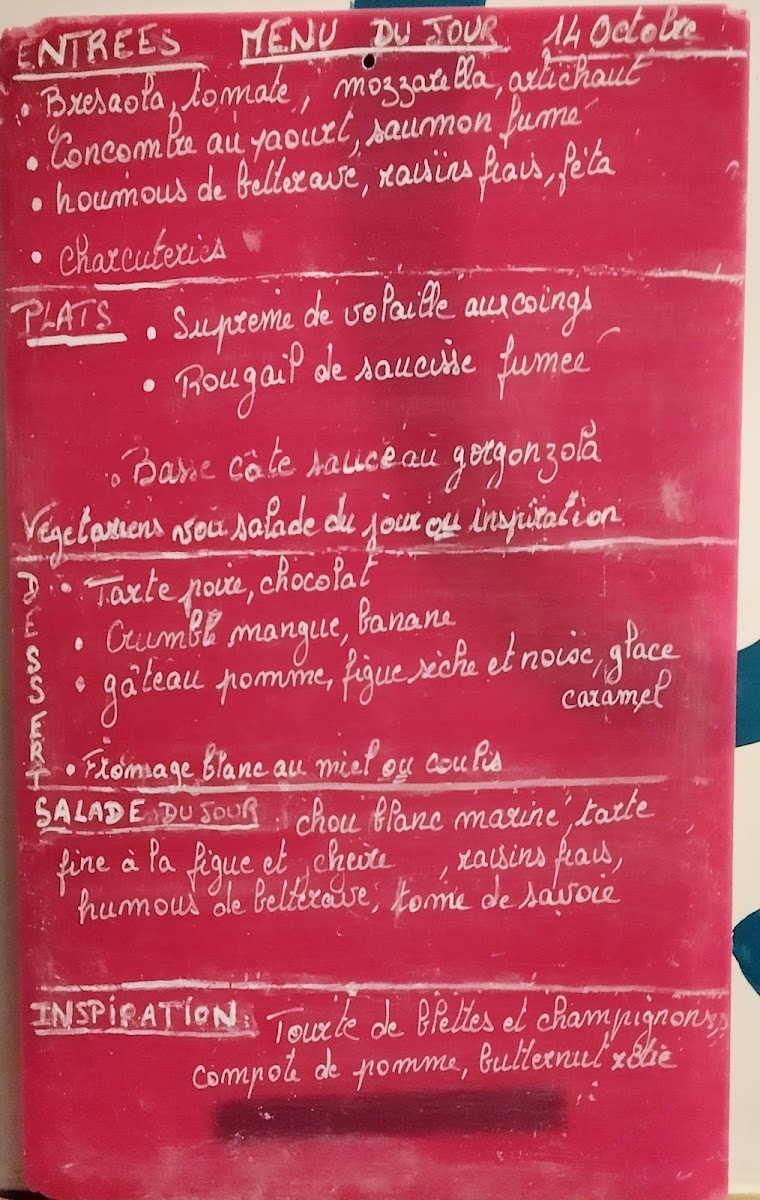 ENTRÉES MENU DU JOUR 14 Octobre
• Bresaola, tomate, mozzarella, artichaut
• Concombre au yaourt, saumon fumé
• houmous de betterave, raisins frais, féta
• charcuteries
PLATS • Suprême de volaille aux coings
• Rougail de saucisse fumée
• Basse côte sauce au gorgonzola
Végétariens voir salade du jour ou inspiration
DESSERT
• Tarte poire, chocolat
• Crumble mangue, banane
• gâteau pomme, figue sèche et noix, glace
caramel
• Fromage blanc au miel ou coulis
SALADE DU JOUR : chou blanc mariné, tarte
fine à la figue et chèvre, raisins frais,
humous de betterave, tome de savoie
INSPIRATION : Tourte de blettes et champignons,
compote de pomme, butternut rôtie